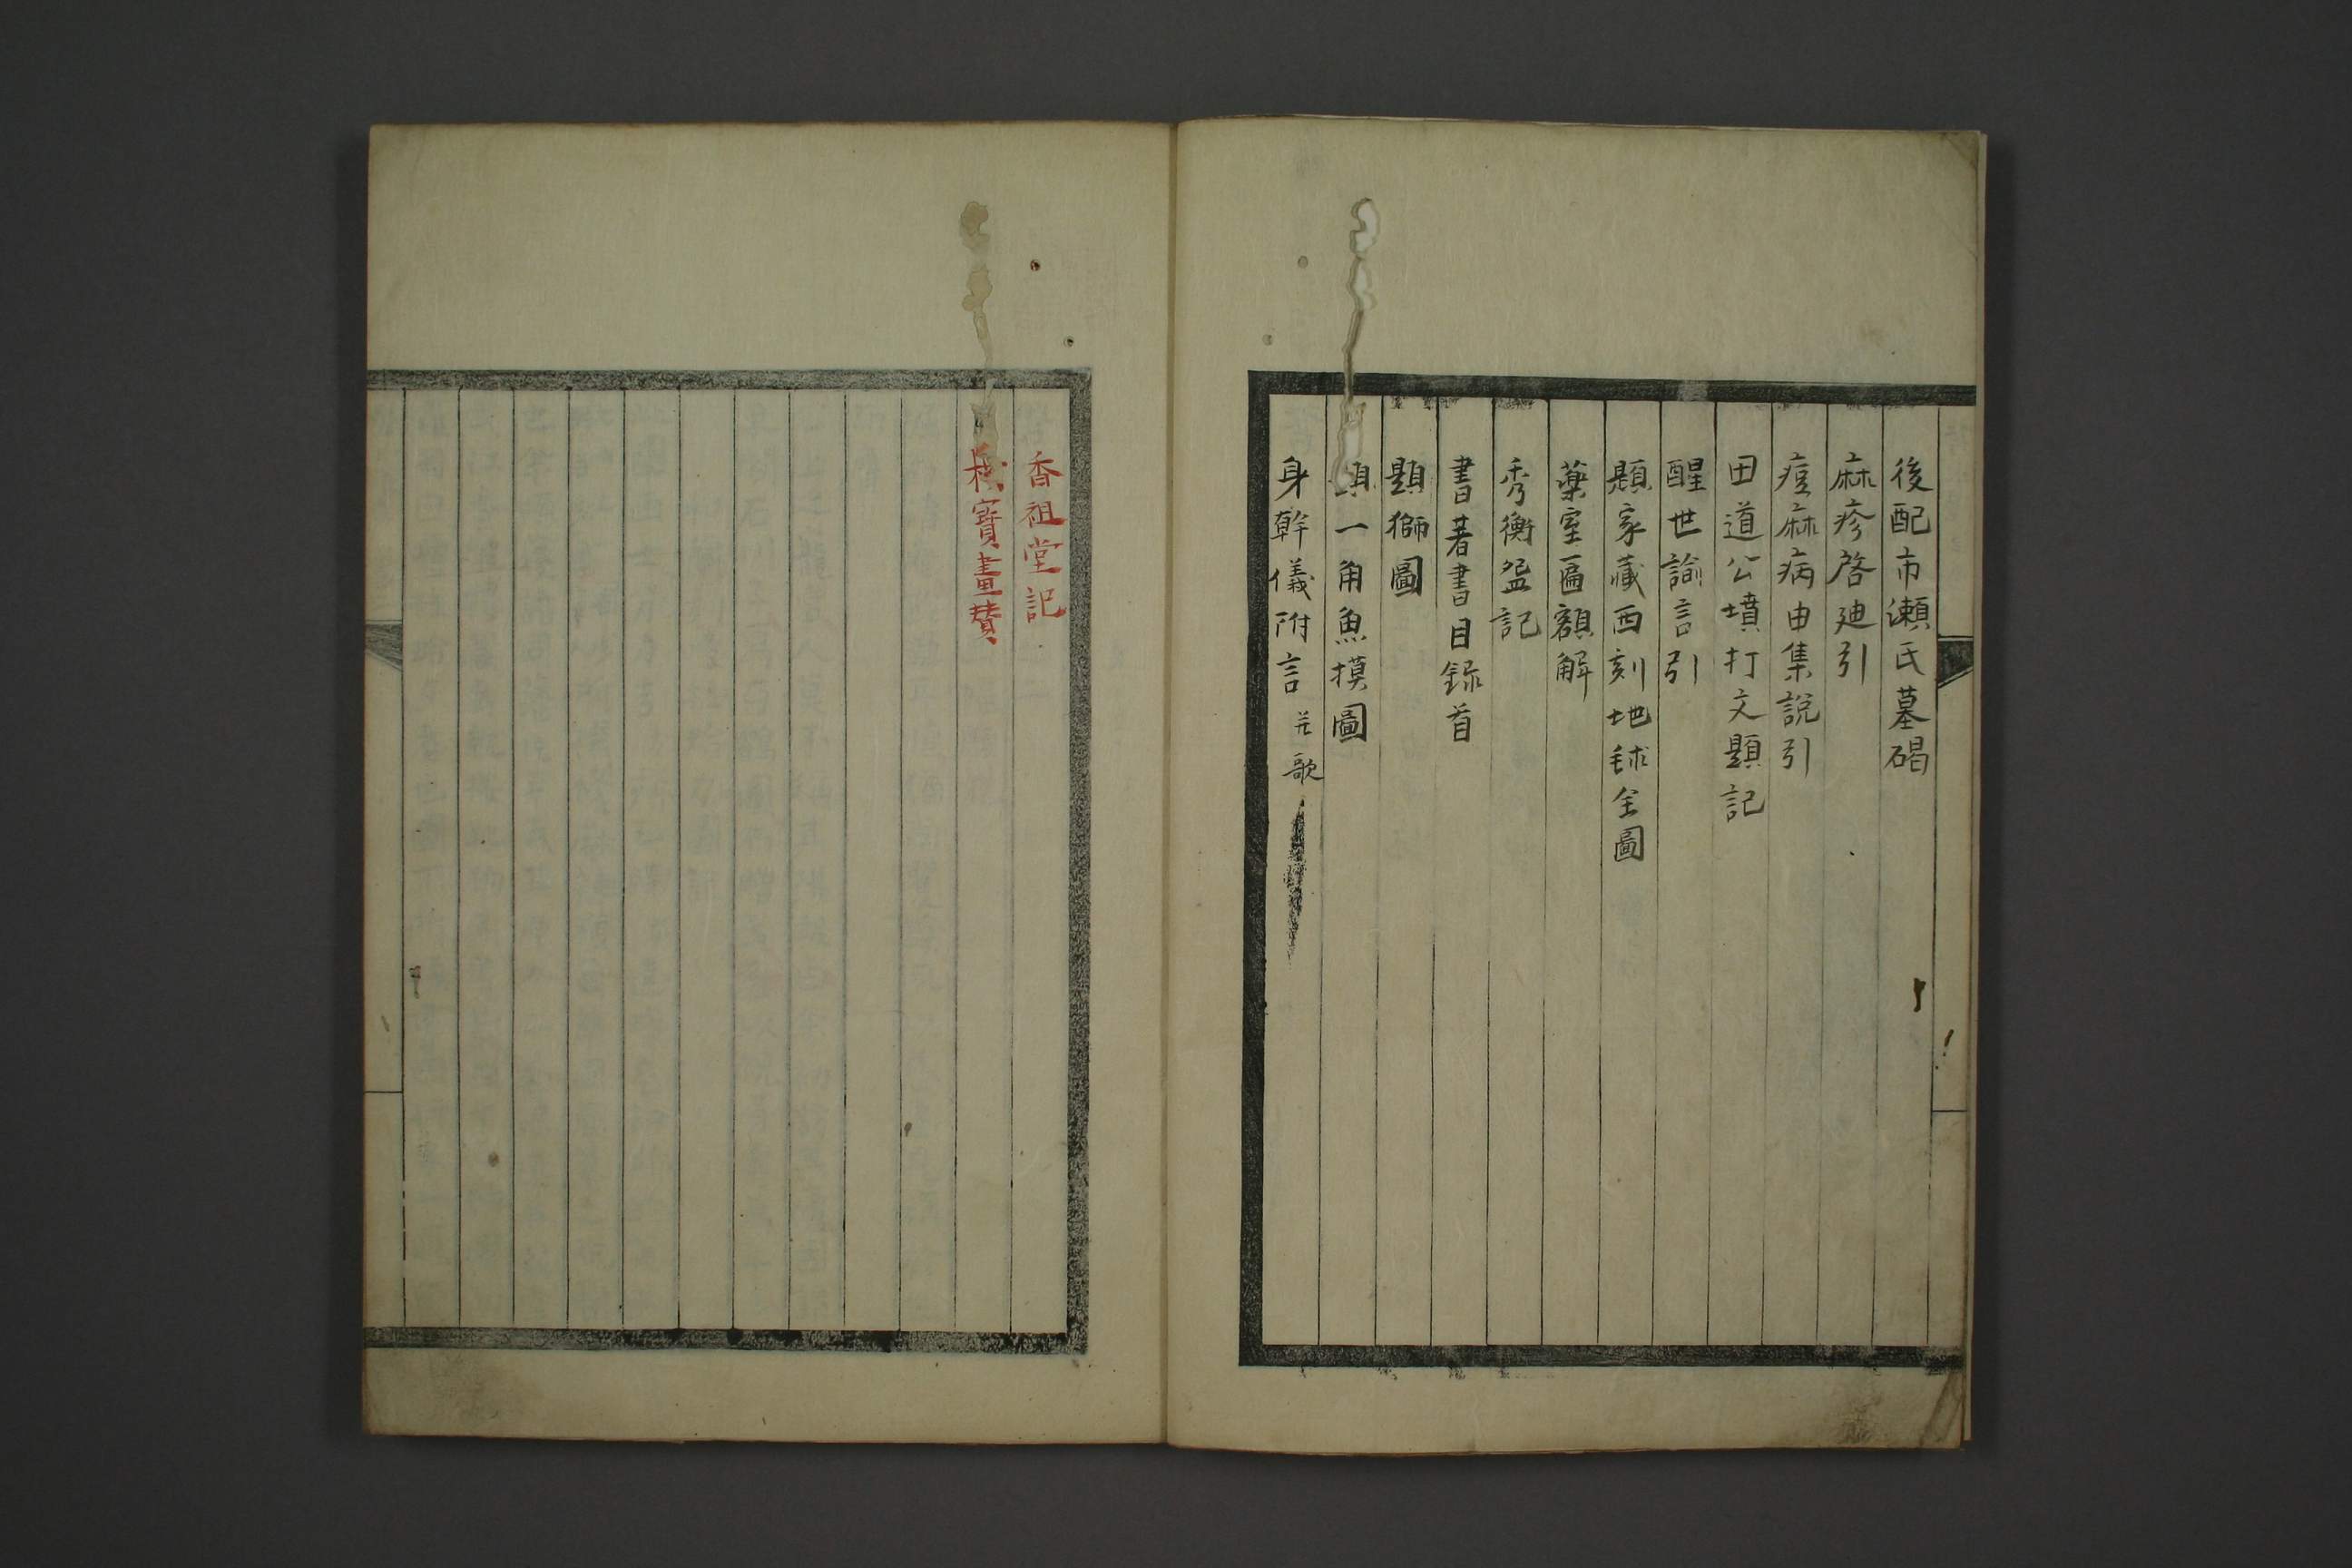 後配市瀬氏墓碣
麻疹啓廸引
痘麻病由集說引
田道公墳打文題記
醒世諭言引
題家藏西刻地球全圖
藥室匾額解
秀衡盌記
書著書目録首
題獅圖
題一角魚摸圖
身幹儀附言 并歌
香祖堂記
栈寶畫賛